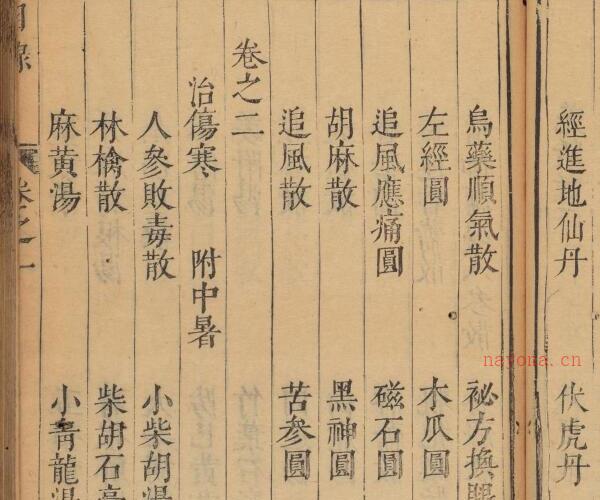 經進地仙丹 伏虎丹
烏藥順氣散 祕方換腿
左經圓 木瓜圓
追風應痛圓 磁石圓
胡麻散 黑神圓
追風散 苦參圓
卷之二
治傷寒 附中暑
人參敗毒散 小柴胡湯
林檎散 柴胡石膏
麻黃湯 小青龍湯
目錄 卷之一
nayona.cn